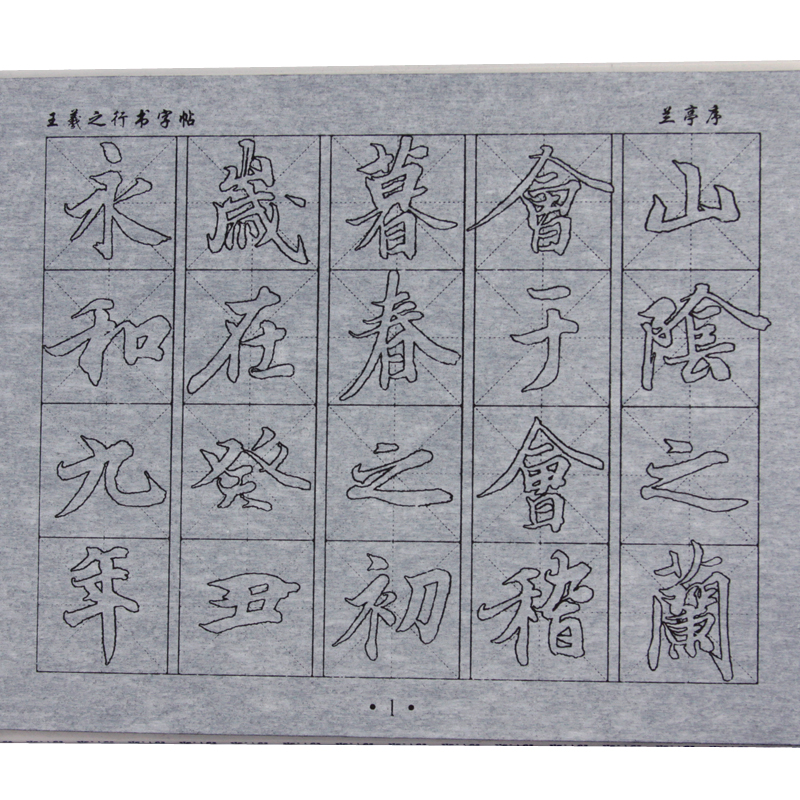 王羲之行书字帖
兰亭序
永和九年
歲在癸丑
暮春之初
會于會稽
山陰之蘭
•1•